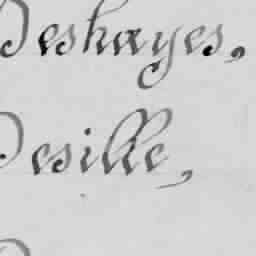 Deshayes,
Desille,